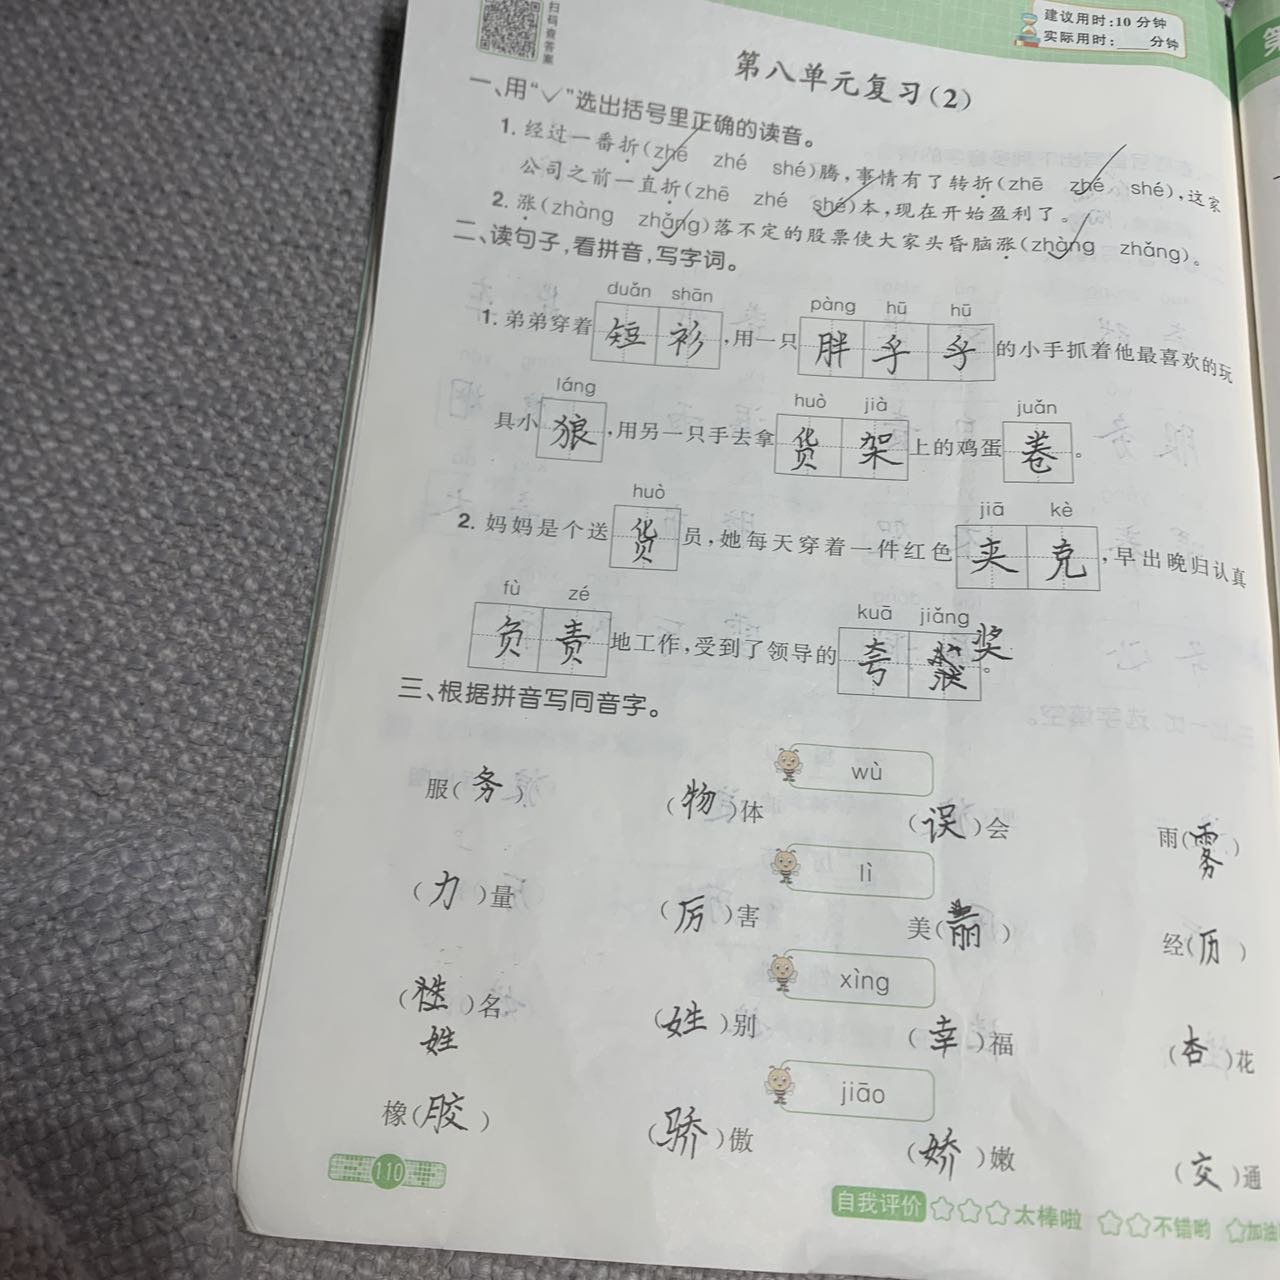 扫码查答案
建议用时:10 分钟
实际用时:____分钟
第八单元复习(2)
一、用“✓”选出括号里正确的读音。
1. 经过一番折(zhē zhé shé)腾,事情有了转折(zhē zhé shé),这家
公司之前一直折(zhē zhé shé)本,现在开始盈利了。
2. 涨(zhàng zhǎng)落不定的股票使大家头昏脑涨(zhàng zhǎng)。
二、读句子,看拼音,写字词。
duǎn shān pàng hū hū
1. 弟弟穿着短衫,用一只胖乎乎的小手抓着他最喜欢的玩
láng huò jià juǎn
具小狼,用另一只手去拿货架上的鸡蛋卷。
huò jiā kè
2. 妈妈是个送货员,她每天穿着一件红色夹克,早出晚归认真
fù zé kuā jiǎng
负责地工作,受到了领导的夸奖。
三、根据拼音写同音字。
wù
服(务) (物)体 (误)会 雨(雾)
lì
(力)量 (厉)害 美(丽) 经(历)
xìng
(性)名 (姓)别 (幸)福 (杏)花
姓
jiāo
橡(胶) (骄)傲 (娇)嫩 (交)通
110
自我评价 ☆☆☆太棒啦 ☆☆不错哟 ☆加油